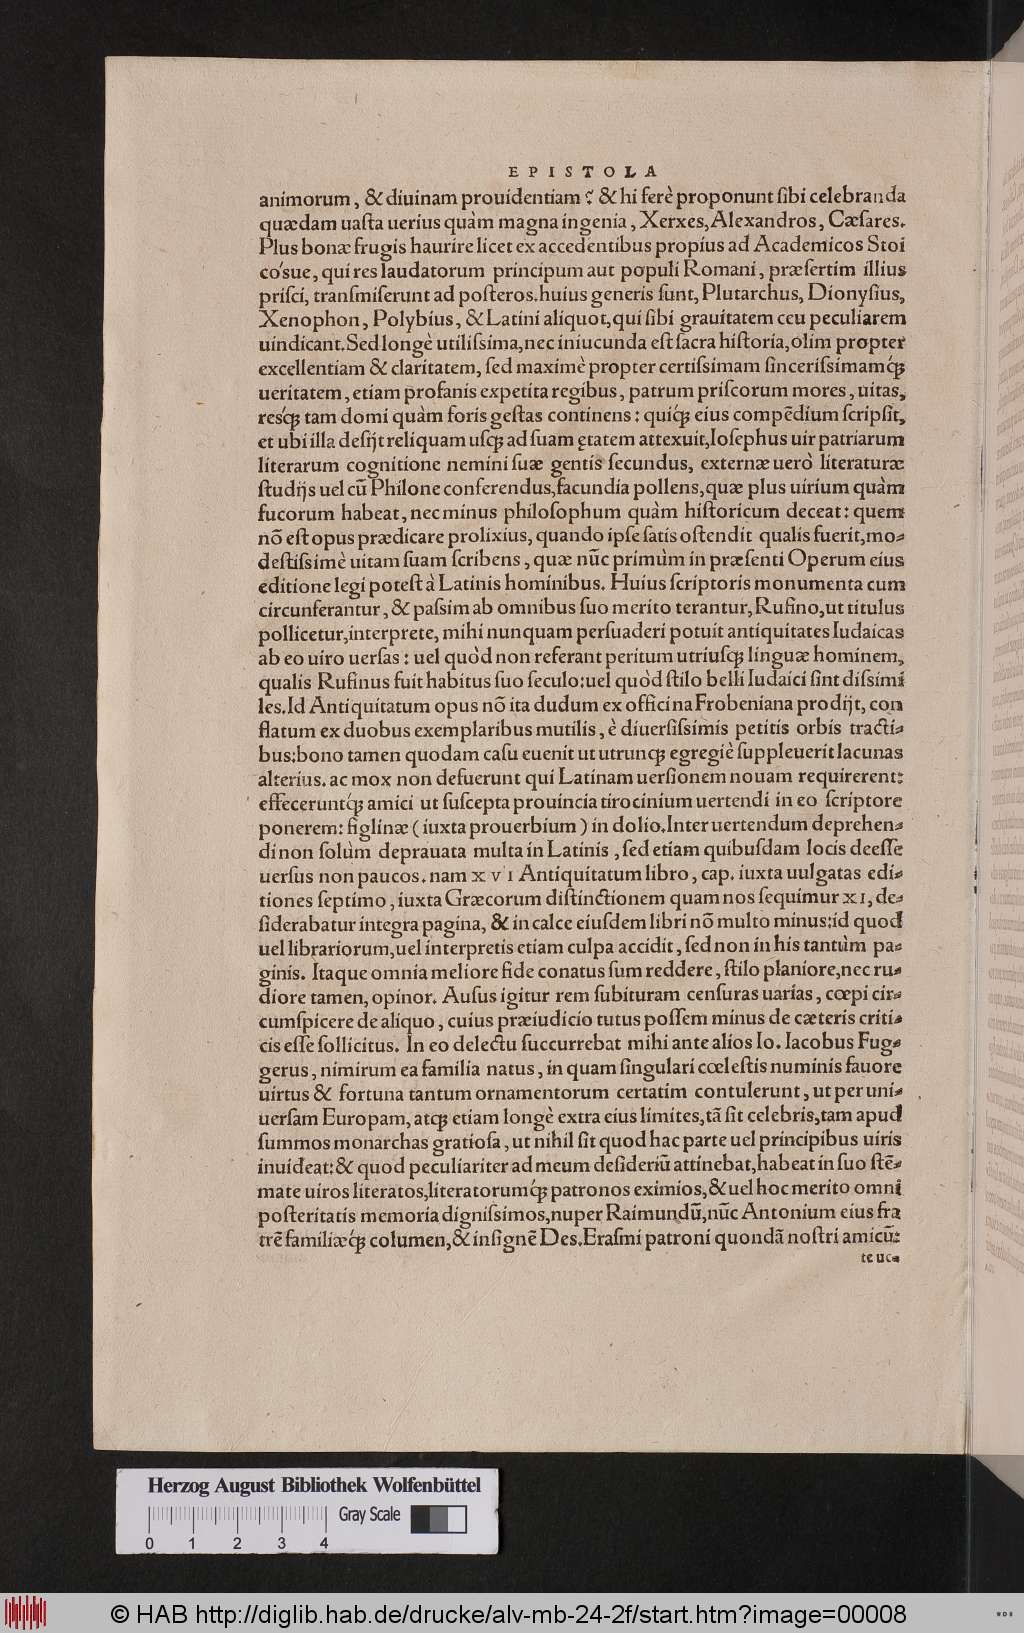 EPISTOLA
animorum, & diuinam prouidentiam ? & hi ferè proponunt ſibi celebranda
quædam uaſta uerius quàm magna ingenia, Xerxes, Alexandros, Cæſares.
Plus bonæ frugis haurire licet ex accedentibus propius ad Academicos Stoi
cósue, qui res laudatorum principum aut populi Romani, præſertim illius
priſci, tranſmiſerunt ad poſteros. huius generis ſunt, Plutarchus, Dionyſius,
Xenophon, Polybius, & Latini aliquot, qui ſibi grauitatem ceu peculiarem
uindicant. Sed longè utiliſsima, nec iniucunda eſt ſacra hiſtoria, olim propter
excellentiam & claritatem, ſed maximè propter certiſsimam ſinceriſsimamq́ꝫ
ueritatem, etiam profanis expetita regibus, patrum priſcorum mores, uitas,
resq́ꝫ tam domi quàm foris geſtas continens : quiq́ꝫ eius compēdium ſcripſit,
et ubi illa deſijt reliquam uſqꝫ ad ſuam ętatem attexuit, Ioſephus uir patriarum
literarum cognitione nemini ſuæ gentis ſecundus, externæ uerò literaturæ
ſtudijs uel cū Philone conferendus, facundia pollens, quæ plus uirium quàm
fucorum habeat, nec minus philoſophum quàm hiſtoricum deceat : quem
nō eſt opus prædicare prolixius, quando ipſe ſatis oſtendit qualis fuerit, mo⸗
deſtiſsimè uitam ſuam ſcribens, quæ nūc primùm in præſenti Operum eius
editione legi poteſt à Latinis hominibus. Huius ſcriptoris monumenta cum
circunferantur, & paſsim ab omnibus ſuo merito terantur, Rufino, ut titulus
pollicetur, interprete, mihi nunquam perſuaderi potuit antiquitates Iudaicas
ab eo uiro uerſas : uel quòd non referant peritum utriuſqꝫ linguæ hominem,
qualis Rufinus fuit habitus ſuo ſeculo: uel quòd ſtilo belli Iudaici ſint diſsimi
les. Id Antiquitatum opus nō ita dudum ex officina Frobeniana prodijt, con
flatum ex duobus exemplaribus mutilis, è diuerſiſsimis petitis orbis tracti⸗
bus: bono tamen quodam caſu euenit ut utrunqꝫ egregiè ſuppleuerit lacunas
alterius. ac mox non defuerunt qui Latinam uerſionem nouam requirerent:
effeceruntq́ꝫ amici ut ſuſcepta prouincia tirocinium uertendi in eo ſcriptore
ponerem: figlinæ ( iuxta prouerbium ) in dolio. Inter uertendum deprehen⸗
di non ſolùm deprauata multa in Latinis, ſed etiam quibuſdam locis deeſſe
uerſus non paucos. nam XVI Antiquitatum libro, cap. iuxta uulgatas edi⸗
tiones ſeptimo, iuxta Græcorum diſtinctionem quam nos ſequimur XI, de⸗
ſiderabatur integra pagina, & in calce eiuſdem libri nō multo minus: id quod
uel librariorum, uel interpretis etiam culpa accidit, ſed non in his tantùm pa⸗
ginis. Itaque omnia meliore fide conatus ſum reddere, ſtilo planiore, nec ru⸗
diore tamen, opinor. Auſus igitur rem ſubituram cenſuras uarias, cœpi cir⸗
cumſpicere de aliquo, cuius præiudicio tutus poſſem minus de cæteris criti⸗
cis eſſe ſollicitus. In eo delectu ſuccurrebat mihi ante alios Io. Iacobus Fug⸗
gerus, nimirum ea familia natus, in quam ſingulari cœleſtis numinis fauore
uirtus & fortuna tantum ornamentorum certatim contulerunt, ut per uni⸗
uerſam Europam, atqꝫ etiam longè extra eius limites, tā ſit celebris, tam apud
ſummos monarchas gratioſa, ut nihil ſit quod hac parte uel principibus uiris
inuideat: & quod peculiariter ad meum deſideriū attinebat, habeat in ſuo ſtē⸗
mate uiros literatos, literatorumq́ꝫ patronos eximios, & uel hoc merito omni
poſteritatis memoria digniſsimos, nuper Raimundū, nūc Antonium eius fra
trē familiæq́ꝫ columen, & inſignē Des. Eraſmi patroni quondā noſtri amicū:
te uc⸗
Herzog August Bibliothek Wolfenbüttel
Gray Scale
0 1 2 3 4
© HAB http://diglib.hab.de/drucke/alv-mb-24-2f/start.htm?image=00008